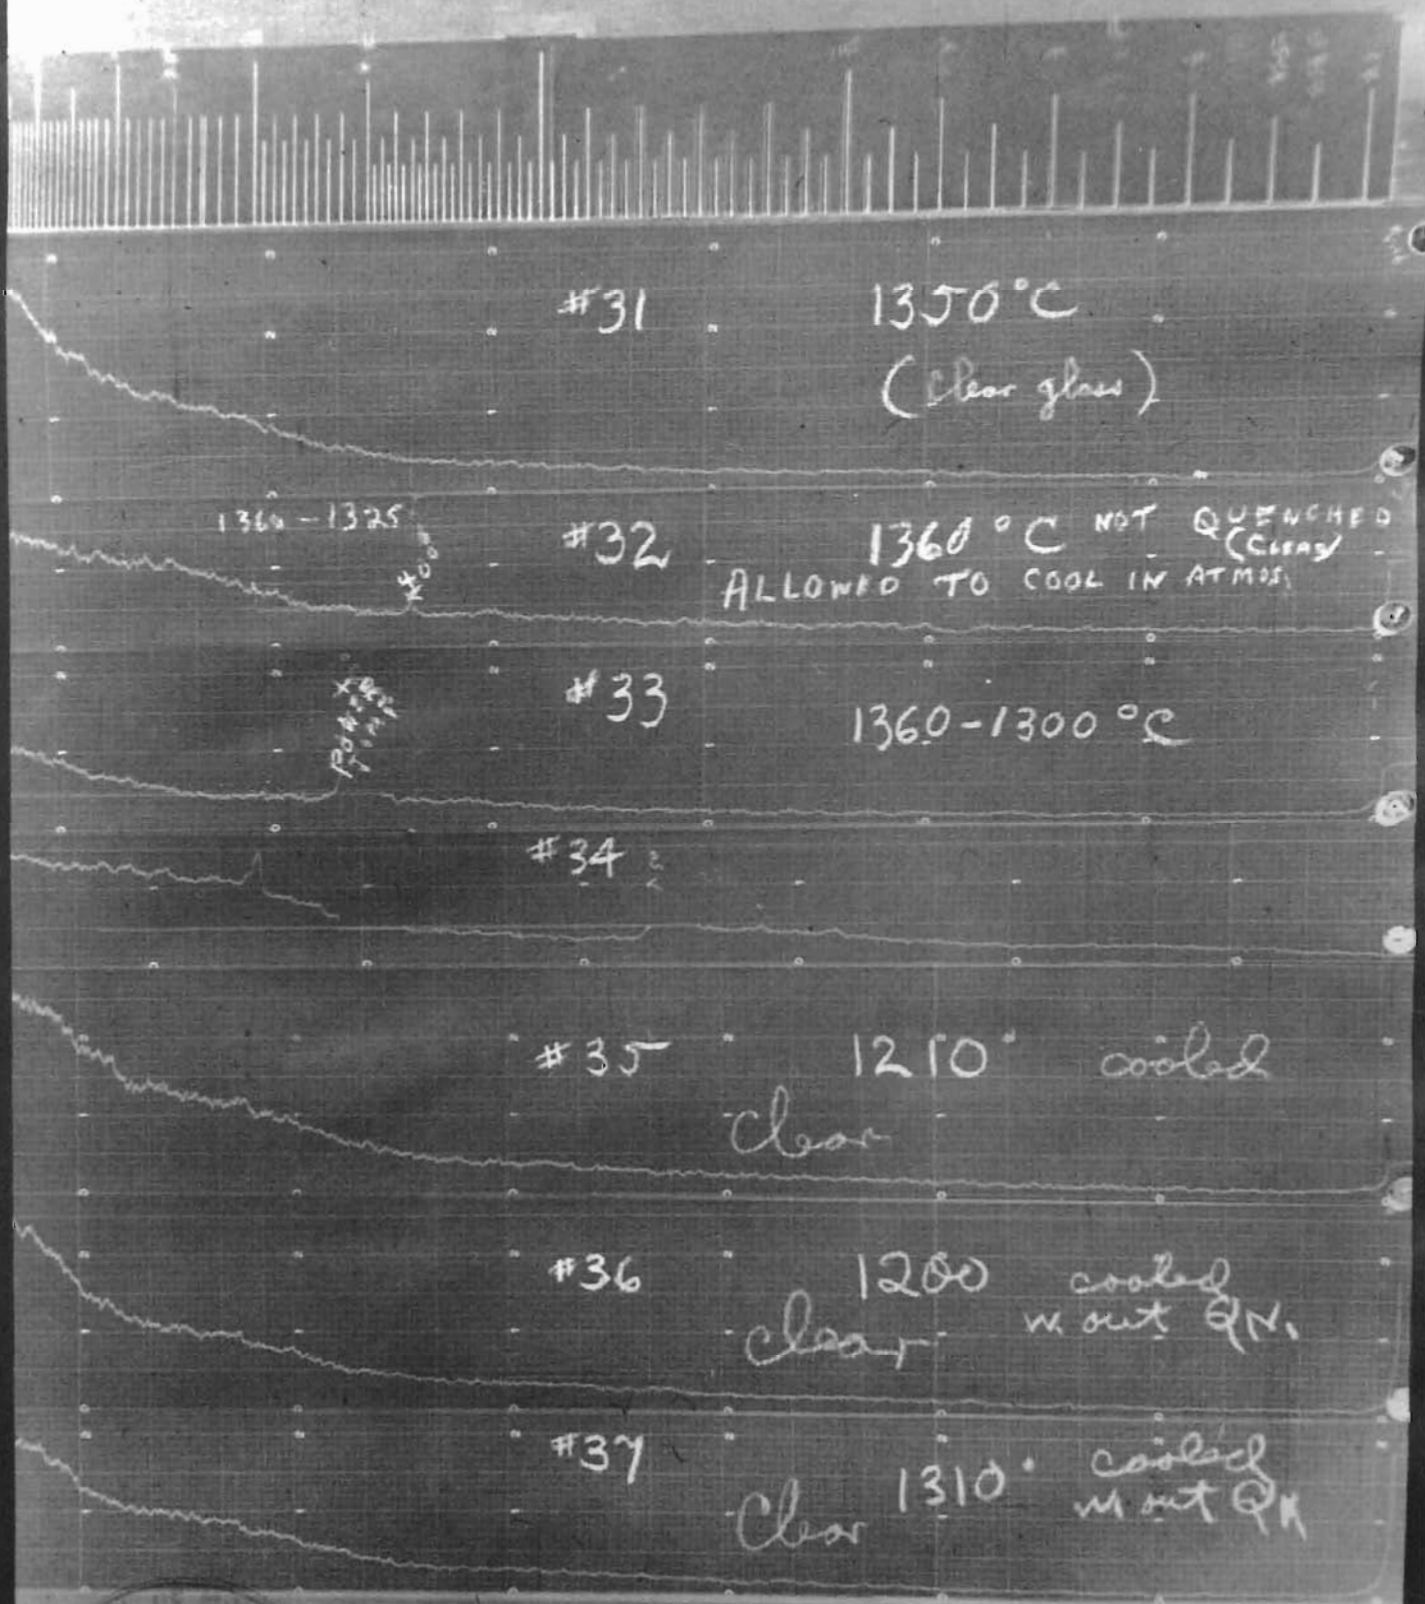 #31 1350°C
(clear glass)
1360-1325
#32 1360°C NOT QUENCHED
(CLEAR)
ALLOWED TO COOL IN ATMOS.
#33
1360-1300°C
#34
#35 1210° cooled
clear
#36 1200 cooled
w. out QN.
clear
#37 1310° cooled
w out QN
Clear